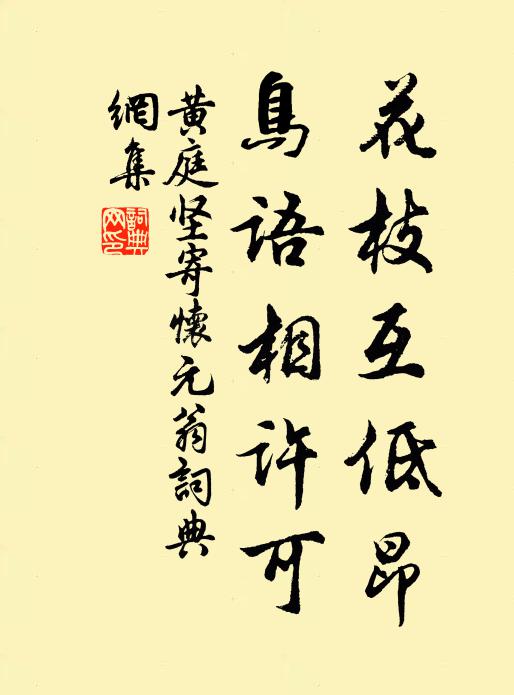 花枝互低昂
鳥語相許可
黄庭坚寄懷元翁詞典
網集
詞典
网印